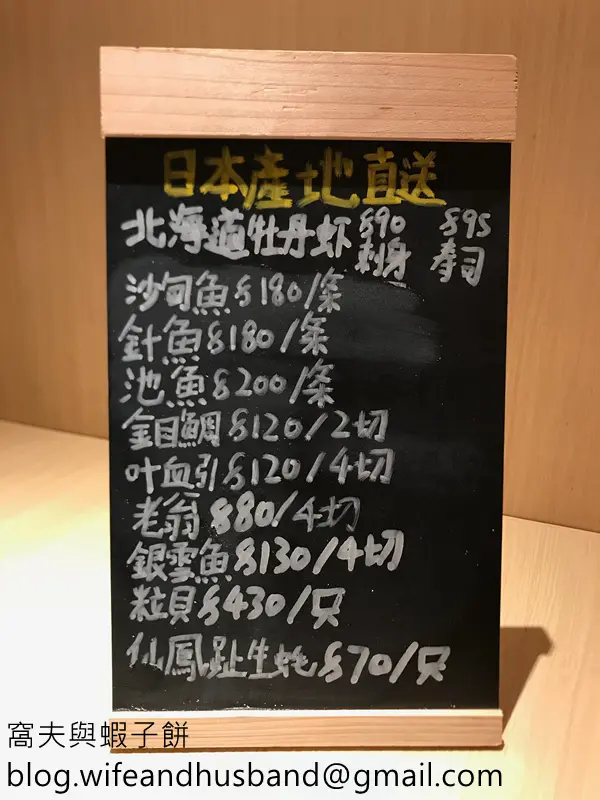 日本產地直送
北海道牡丹虾 $90 刺身 $95 寿司
沙甸魚 $180/条
針魚 $180/条
池魚 $200/条
金目鯛 $120/2切
叶血引 $120/4切
老翁 $80/4切
銀雪魚 $130/4切
粒貝 $430/只
仙鳳趾生蚝 $70/只
窩夫與蝦子餅
blog.wifeandhusband@gmail.com